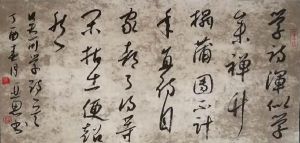 学诗浑似学
参禅竹
榻蒲团不计
年直待自
家都了得等
闲拈出便超
然
吴可学诗
丁酉春月
书